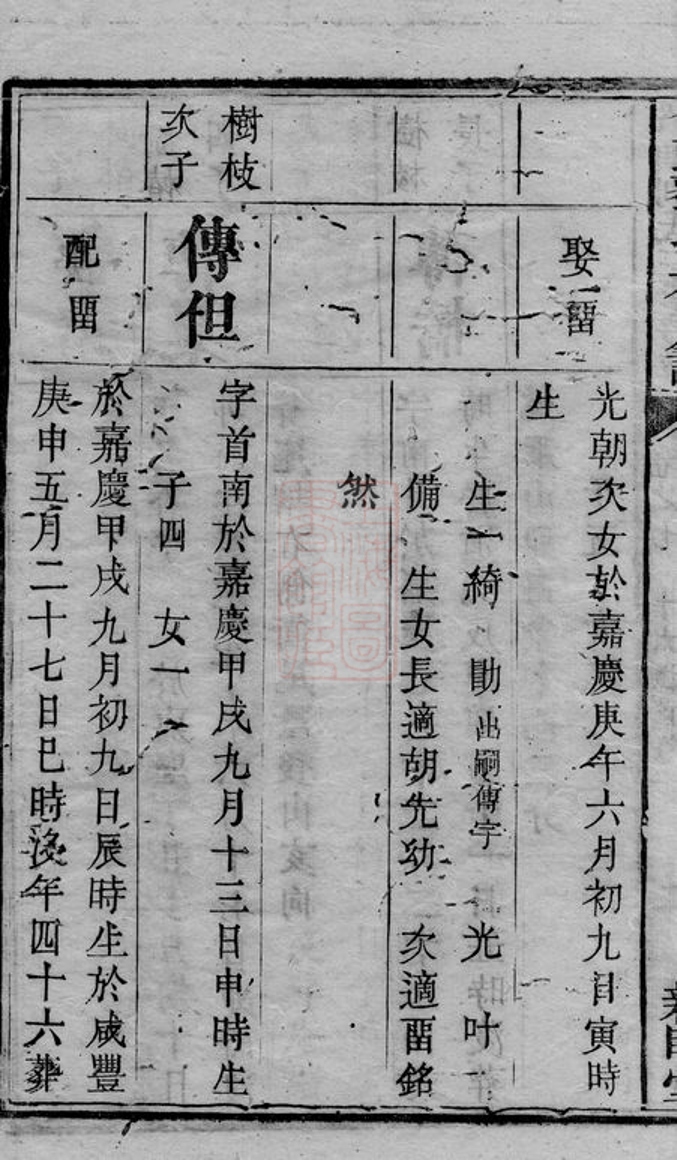 娶畱
光朝次女於嘉慶庚午六月初九日寅時
生
生一綺 勛出嗣傳字 光 叶
備 生女長適胡先功 次適畱銘
然
樹枝
次子
傳但
字首南於嘉慶甲戌九月十三日申時生
子四 女一
配畱
於嘉慶甲戌九月初九日辰時生於咸豐
庚申五月二十七日巳時没年四十六葬